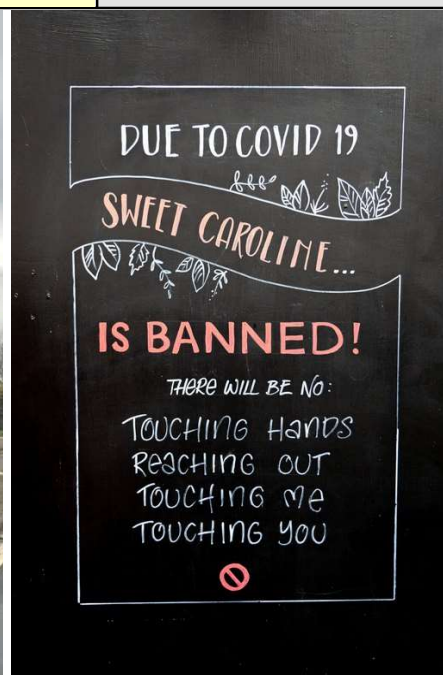 DUE TO COVID 19
SWEET CAROLINE...
IS BANNED!
THERE WILL BE NO:
TOUCHING HANDS
REACHING OUT
TOUCHING ME
TOUCHING YOU